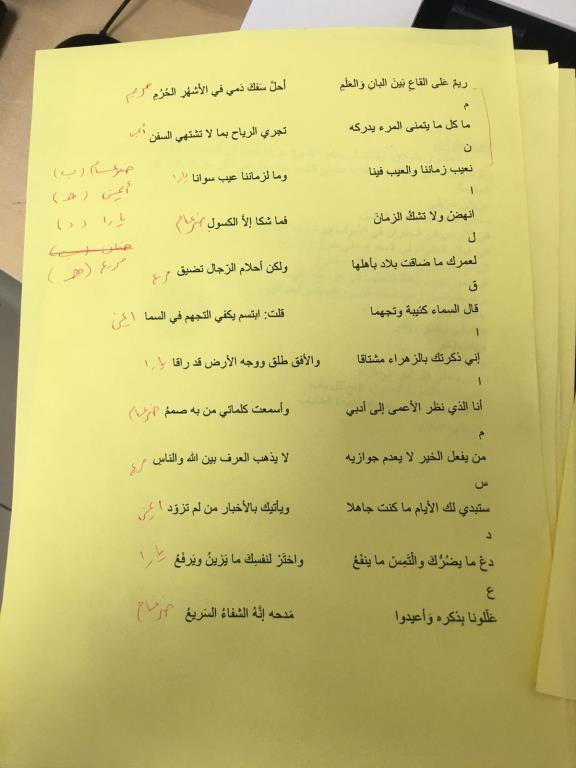 ريمٌ عَلى القاعِ بَينَ البانِ وَالعَلَمِ أحلَّ سَفكَ دَمي في الأشهُرِ الحُرُمِ مريم
م
ما كل ما يتمنى المرء يدركه تجري الرياح بما لا تشتهي السفن أيمن
ن
نعيب زماننا والعيب فينا وما لزماننا عيب سوانا يارا
ا
ضرغام (ب)
أيمن (هـ)
انهضْ ولا تشكُ الزمانَ فما شكا إلاَّ الكسول ضرغام
يارا (د)
ل
حنان (ب)
لعمرك ما ضاقت بلاد بأهلها ولكن أحلام الرّجال تضيق مريم
مريم (هـ)
ق
قال السماء كئيبة وتجهما قلت: ابتسم يكفي التجهم في السما ايمن
ا
إني ذكرتك بالزهراء مشتاقا والأفق طلق ووجه الأرض قد راقا يارا
ا
أنا الذي نظر الأعمى إلى أدبي وأسمعت كلماتي من به صممُ ضرغام
م
من يفعل الخير لا يعدم جوازيه لا يذهب العرف بين الله والناسِ مريم
س
ستبدي لك الأيام ما كنت جاهلا ويأتيك بالأخبار من لم تزوّد ايمن
د
دعْ ما يضُرُّكَ والْتَمِسْ ما ينفَعُ واختَرْ لنفسِكَ ما يَزينُ ويَرفَعُ يارا
ع
عَلّلونا بِذكره وَأعيدوا مَدحه إنَّهُ الشفاءُ السَريعُ ضرغام